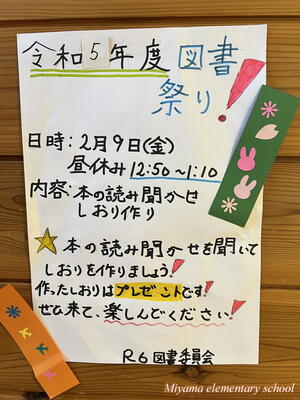 令和5年度 図書
祭り!
日時:2月9日(金)
昼休み 12:50~1:10
内容:本の読み聞かせ
しおり作り
本の読み聞かせを聞いて
しおりを作りましょう!
作ったしおりはプレゼントです!
ぜひ来て、楽しんでください!
R6図書委員会
Miyama elementary school